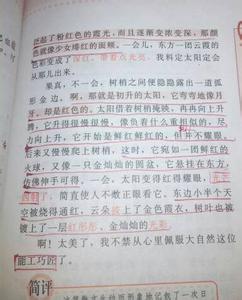 泛起了粉红色的霞光，而且逐渐变浓变深，那颜
色就像少女绯红的面颊。一会儿，东方一团云霞的
色彩变成了深红，带着点光亮。我料定太阳定会
从那儿出来。
果真，不一会，树梢之间便隐隐露出一道弧
形金边。啊，那就是初升的太阳，它弯弯地像月
牙，却是红色的。太阳借着树梢掩映，再冉冉向上升
腾，它升得很慢很慢，像负着什么重担似的，尽
力向上升，它开始是鲜红鲜红的，但并不耀眼。
后来又慢慢爬上树梢，这时，它宛如一团鲜红的
火球，又像一只金灿灿的圆盆，它悬挂在东方，
仿佛伸手可得。一会，太阳变得红得耀眼，
简直使人不敢正眼看它。东边小半个天
空被烧得通红，云朵披上了金色霞衣，树叶也被
镀上了一层红彤彤、金灿灿的光彩。
啊！太美了，我不禁从心里佩服大自然这位
能工巧匠了。
简评